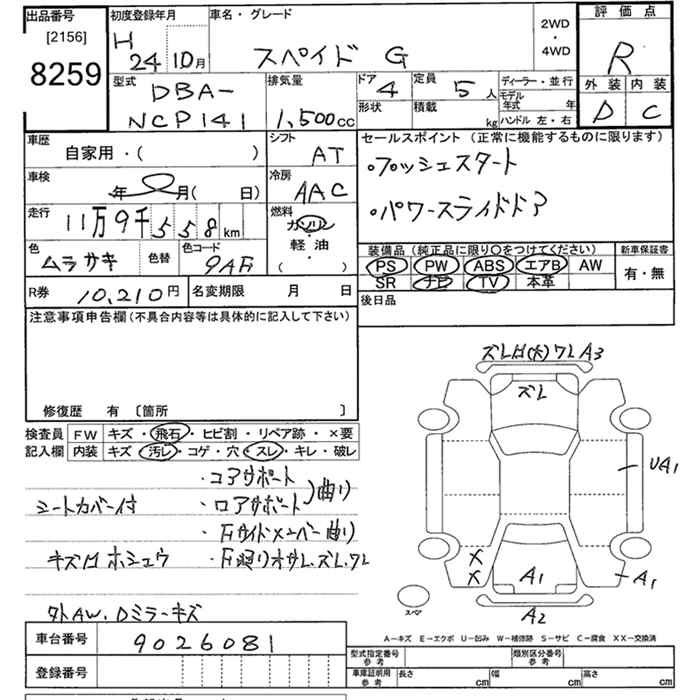 出品番号
[2156]
8259
初度登録年月
H 24 10月
車名・グレード
スペイド G
2WD
・
4WD
評価点
R
外装 内装
D C
型式
DBA-
NCP141
排気量
1,500cc
ドア
4
形状
定員
5人
積載
kg
ディーラー・並行
モデル年式 年
ハンドル 左・右
車歴
自家用・( )
シフト
AT
セールスポイント(正常に機能するものに限ります)
・プッシュスタート
・パワースライドドア
車検
年 月( 日)
冷房
AAC
走行
11万9千558km
燃料
ガソリン
軽油
( ・ )
色
ムラサキ
色替
色コード
9AF
装備品(純正品に限り○をつけてください)
PS PW ABS エアB AW
SR ナビ TV 本革
新車保証書
有・無
R券
10,210円
名変期限 月 日
後日品
注意事項申告欄(不具合内容等は具体的に記入して下さい)
修復歴 有 〔箇所 〕
検査員記入欄
FW キズ・飛石・ヒビ割・リペア跡・×要
内装 キズ・汚レ・コゲ・穴・スレ・キレ・破レ
・コアサポート
・ロアサポート 曲り
シートカバー付
・Fサイドメンバー曲り
キズ H ホシュウ
・F廻りオサレ、ズレ、ワレ
外AW、Dミラーキズ
ズレH(大)ワレA3
ズレ
UA1
X
X
A1
A1
A2
スペア
A-キズ E-エクボ U-凹み W-補修跡 S-サビ C-腐食 XX-交換済
車台番号
9026081
登録番号
型式指定番号
参考
類別区分番号
参考
車庫証明用
参考
長さ cm
幅 cm
高さ cm